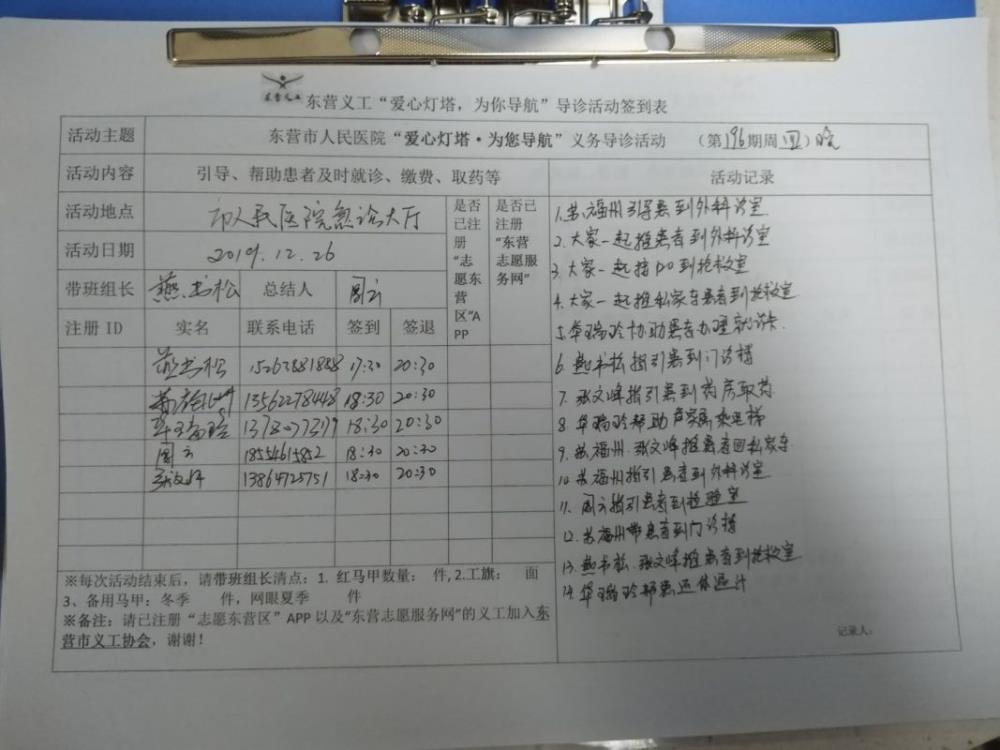 东营义工
东营义工“爱心灯塔，为你导航”导诊活动签到表
活动主题 东营市人民医院“爱心灯塔·为您导航”义务导诊活动 （第196期周四）晚
活动内容 引导、帮助患者及时就诊、缴费、取药等 活动记录
活动地点 市人民医院急诊大厅
活动日期 2019.12.26
带班组长 燕书松 总结人 周云
是否已注册“志愿东营区”APP
是否已注册“东营志愿服务网”
注册 ID 实名 联系电话 签到 签退
燕书松 15263881888 17:30 20:30
苏福州 13562278448 18:30 20:30
华瑞玲 18:30 20:30
周云 18:30 20:30
张文峰 13864725751 18:30 20:30
※每次活动结束后，请带班组长清点：1. 红马甲数量： 件,2.工旗： 面
3、备用马甲：冬季 件，网眼夏季 件
※备注：请已注册“志愿东营区”APP 以及“东营志愿服务网”的义工加入东
营市义工协会，谢谢！
1.苏福州引导患到外科诊室
2.大家一起推患者到外科诊室
3.大家一起接120到抢救室
4.大家一起推私家车患者到抢救室
5.华瑞玲协助患者办理就诊卡
6.燕书松指引患到门诊楼
7.张文峰指引患到药房取药
8.华瑞玲帮助 家属乘电梯
9.苏福州.张文峰推患者回私家车
10.苏福州指引患者到外科诊室
11.周云指引患者到检验室
12.苏福州带患者到门诊楼
13.燕书松.张文峰推患者到抢救室
14.华瑞玲帮患还体温计
记录人：